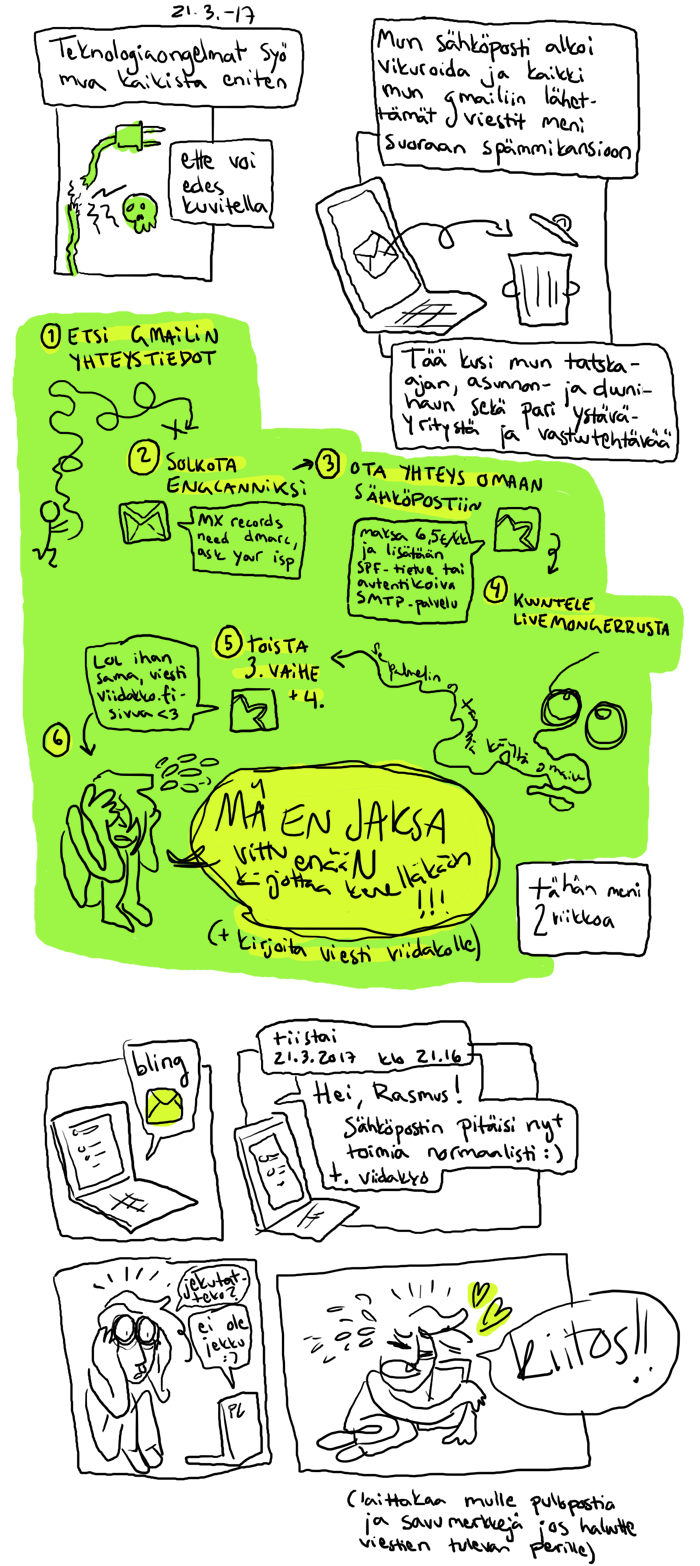 21.3.-17
Teknologiaongelmat syö
mua kaikista eniten
ette voi
edes
kuvitella
Mun sähköposti alkoi
vikuroida ja kaikki
mun gmailiin lähet-
tämät viestit meni
suoraan spämmikansioon
Tää kusi mun tatska-
ajan, asunnon- ja duuni-
haun sekä pari ystävä-
yritystä ja vastuutehtävää
1 ETSI GMAILIN
YHTEYSTIEDOT
X
2 SOLKOTA
ENGLANNIKSI
MX records
need dmarc,
ask your isp
3 OTA YHTEYS OMAAN
SÄHKÖPOSTIIN
maksa 6,5€/kk
ja lisätään
SPF-tietue tai
autentikoiva
SMTP-palvelu
4 KUUNTELE
LIVEMONGERRUSTA
se palvelin
5 TOISTA
3. VAIHE
+ 4.
LOL ihan
sama, viesti
viidakko.fi-
sivua <3
6
MÄ EN JAKSA
vittu enääN
kirjottaa kenelläkään
!!!
(+ kirjoita viesti viidakolle)
tähän meni
2 viikkoa
bling
tiistai
21.3.2017 klo 21.16
Hei, Rasmus!
Sähköpostin pitäisi nyt
toimia normaalisti :)
t. viidakko
jekutat-
teko?
ei ole
jekku
:)
PC
Kiitos!!
(laittakaa mulle pullopostia
ja savumerkkejä jos haluatte
viestien tulevan perille)